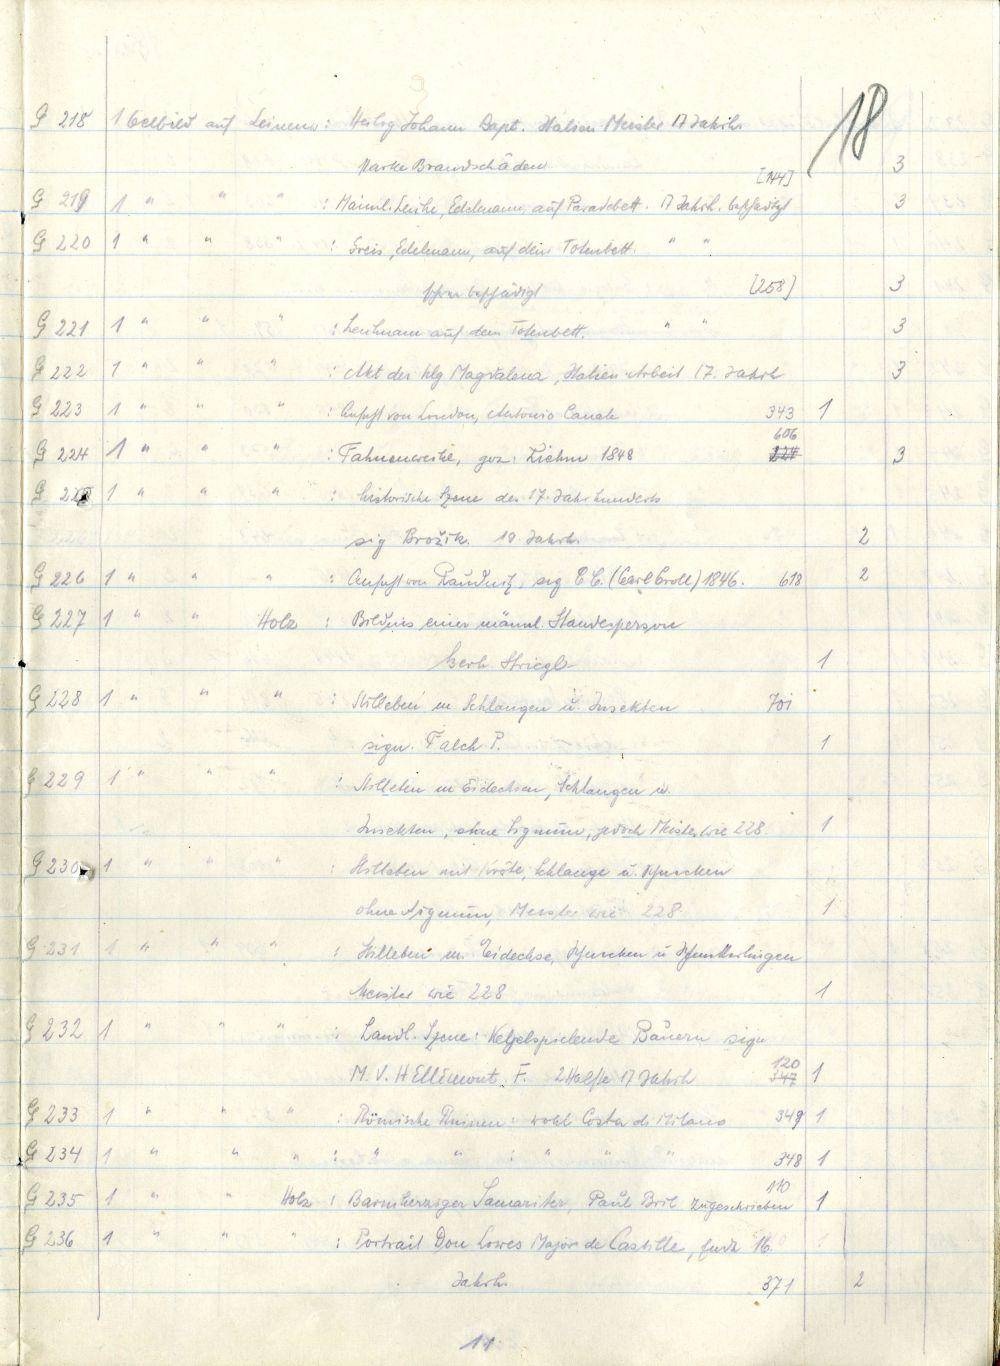 18
G 218 1 Oelbild auf Leinenw: Heilig Johann Bapt. Italien Meister 17 Jahrh.
Starke Brandschäden 3
[144]
G 219 1 " " " : Männl. Leiche, Edelmann, auf Paradebett. 17 Jahrh. beschädigt 3
G 220 1 " " " : Greis, Edelmann, auf dem Totenbett. " "
schwer beschädigt [258] 3
G 221 1 " " " : auf dem Totenbett. " " 3
G 222 1 " " " : Akt der hlg Magdalena, Italien Arbeit 17. Jahrh 3
G 223 1 " " " : Ansicht von London, Antonio Canale 343 1
606
G 224 1 " " " : Fahnenweihe, gez: 1848 3
G 225 1 " " " : historische Szene des 17. Jahrhunderts
sig Brožik. 19 Jahrh. 2
G 226 1 " " " : Ansicht von Raudnitz, sig C C. (Carl Croll) 1846. 618 2
G 227 1 " " Holz : Bildnis einer männl. Standesperson
1
G 228 1 " " " : Stilleben m Schlangen u. Insekten 701
sign. Falch P. 1
G 229 1 " " " : Stilleben m Eidechsen, Schlangen u.
Insekten, ohne Signum, jedoch Meister wie 228. 1
G 230 1 " " " : Stilleben mit Kröte, Schlange u.
ohne Signum, Meister wie 228 1
G 231 1 " " " : Stilleben m. Eidechse, u Schmetterlingen
Meister wie 228 1
G 232 1 " " " : Ländl. Szene: Kegelspielende Bauern sign
120
M. V. HEllemont, F. 2 Hälfte 17 Jahrh 347 1
G 233 1 " " " : Römische Ruinen: wohl Costa di Milano 349 1
G 234 1 " " " : " " : " " " 348 1
110
G 235 1 " " Holz : Barmherziger Samariter, Paul Bril zugeschrieben 1
G 236 1 " " " : Portrait Don Lowes Major de Castille, 16.
Jahrh. 371 2
11